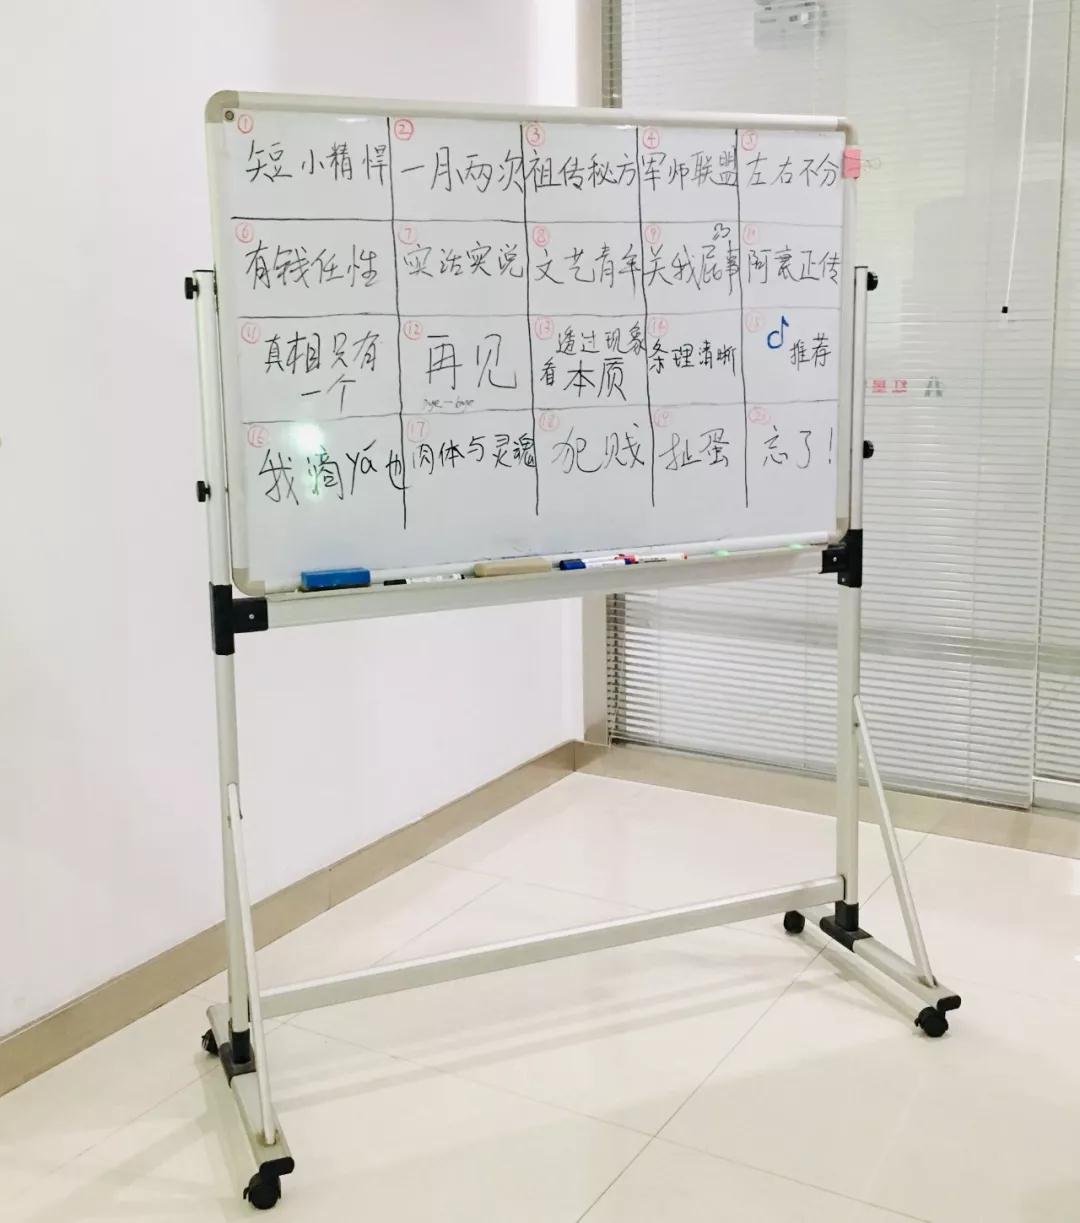 ① 短小精悍
② 一月两次
③ 祖传秘方
④ 军师联盟
⑤ 左右不分
⑥ 有钱任性
⑦ 实话实说
⑧ 文艺青年
⑨ 关我屁事
⑩ 阿衰正传
⑪ 真相只有
一个
⑫ 再见
bye-bye
⑬ 透过现象
看本质
⑭ 条理清晰
⑮ 推荐
⑯ 我滴yá也
⑰ 肉体与灵魂
⑱ 犯贱
⑲ 扯蛋
⑳ 忘了!